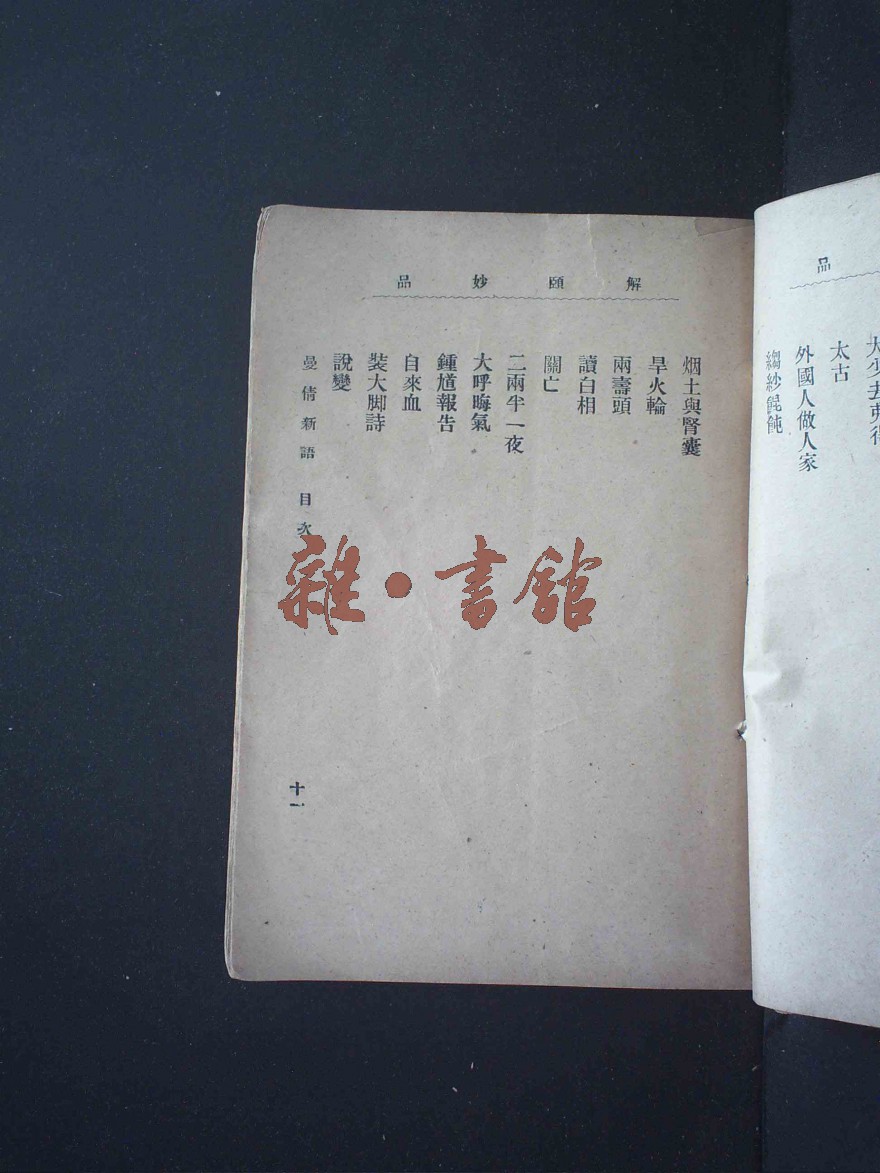 品
太古
外國人做人家
縐紗餛飩
解頤妙品
烟土與腎囊
旱火輪
兩壽頭
讀白相
關亡
二兩半一夜
大呼晦氣
鍾馗報告
自來血
裝大脚詩
說變
曼倩新語 目次
十一
雜·書館